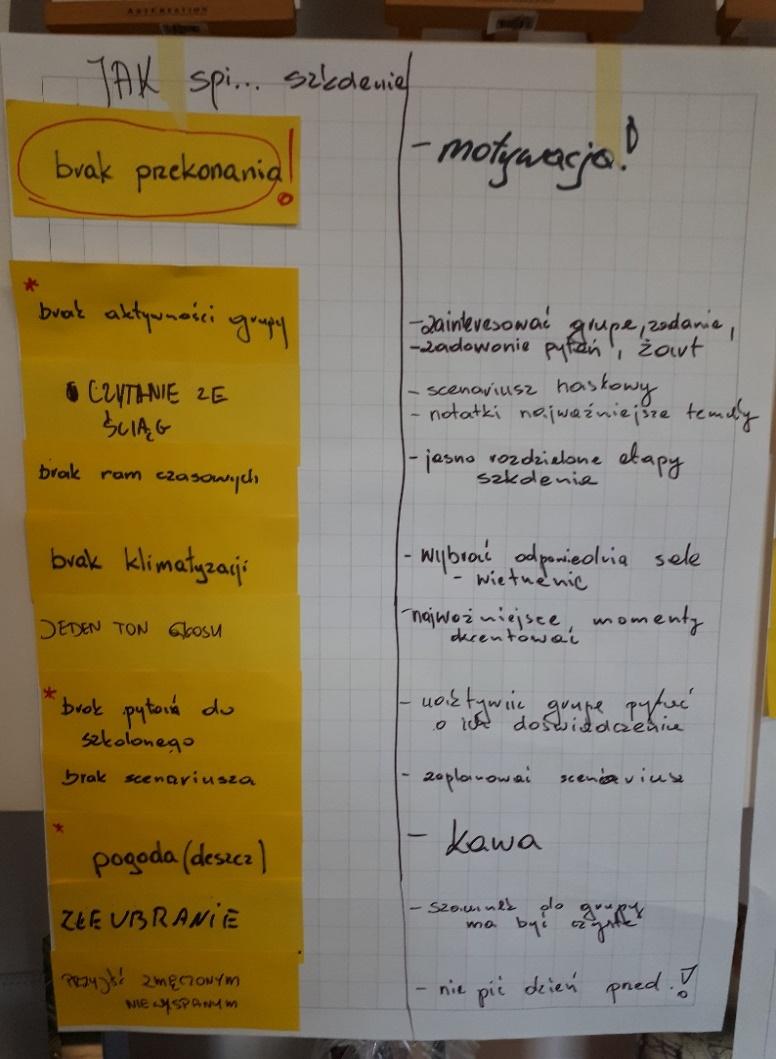 ARTCREATION
JAK spi... szkdenie
brak przekonania!
- motywacja!
* brak aktywności grupy
- zainteresować grupe, zadanie,
- zadawanie pytań, żart
CZYTANIE ZE
ŚCIĄG
- scenariusz haskowy
- notatki najważniejsze tematy
brak ram czasowych
- jasno rozdzielone etapy
szkdenia
brak klimatyzacji
- wybrać odpowiednia sale
- wietrzenie
JEDEN TON GŁOSU
- najważniejsze momenty
akcentować
* brak pytań do
szkolonego
- grupe pytać
o ich doświadczenia
brak scenariusza
- zaplanować scenariusz
* pogoda (deszcz)
- kawa
ZŁE UBRANIE
- szacunek do grupy
ma być czyste
PRZYJŚĆ ZMĘCZONYM
NIEWYSPANYM
- nie pić dzień przed!